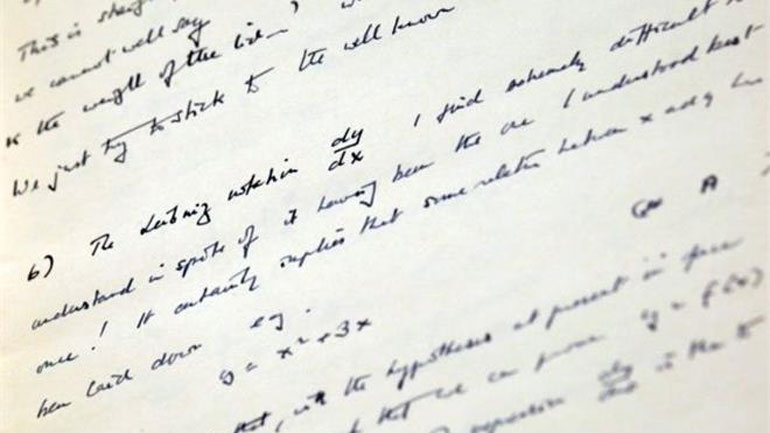 This is
we cannot well say
is the weight of the
We just try to stick to the well known
6) The Leibniz notation dy/dx I find extremely difficult to
understand in spite of it having been the one I understood best
once! It certainly implies that some relation between x and y has
been laid down eg.
y = x² + 3x
that, with the hypotheses at present in force
that we can prove y = f(x)
expression dy/dx is the